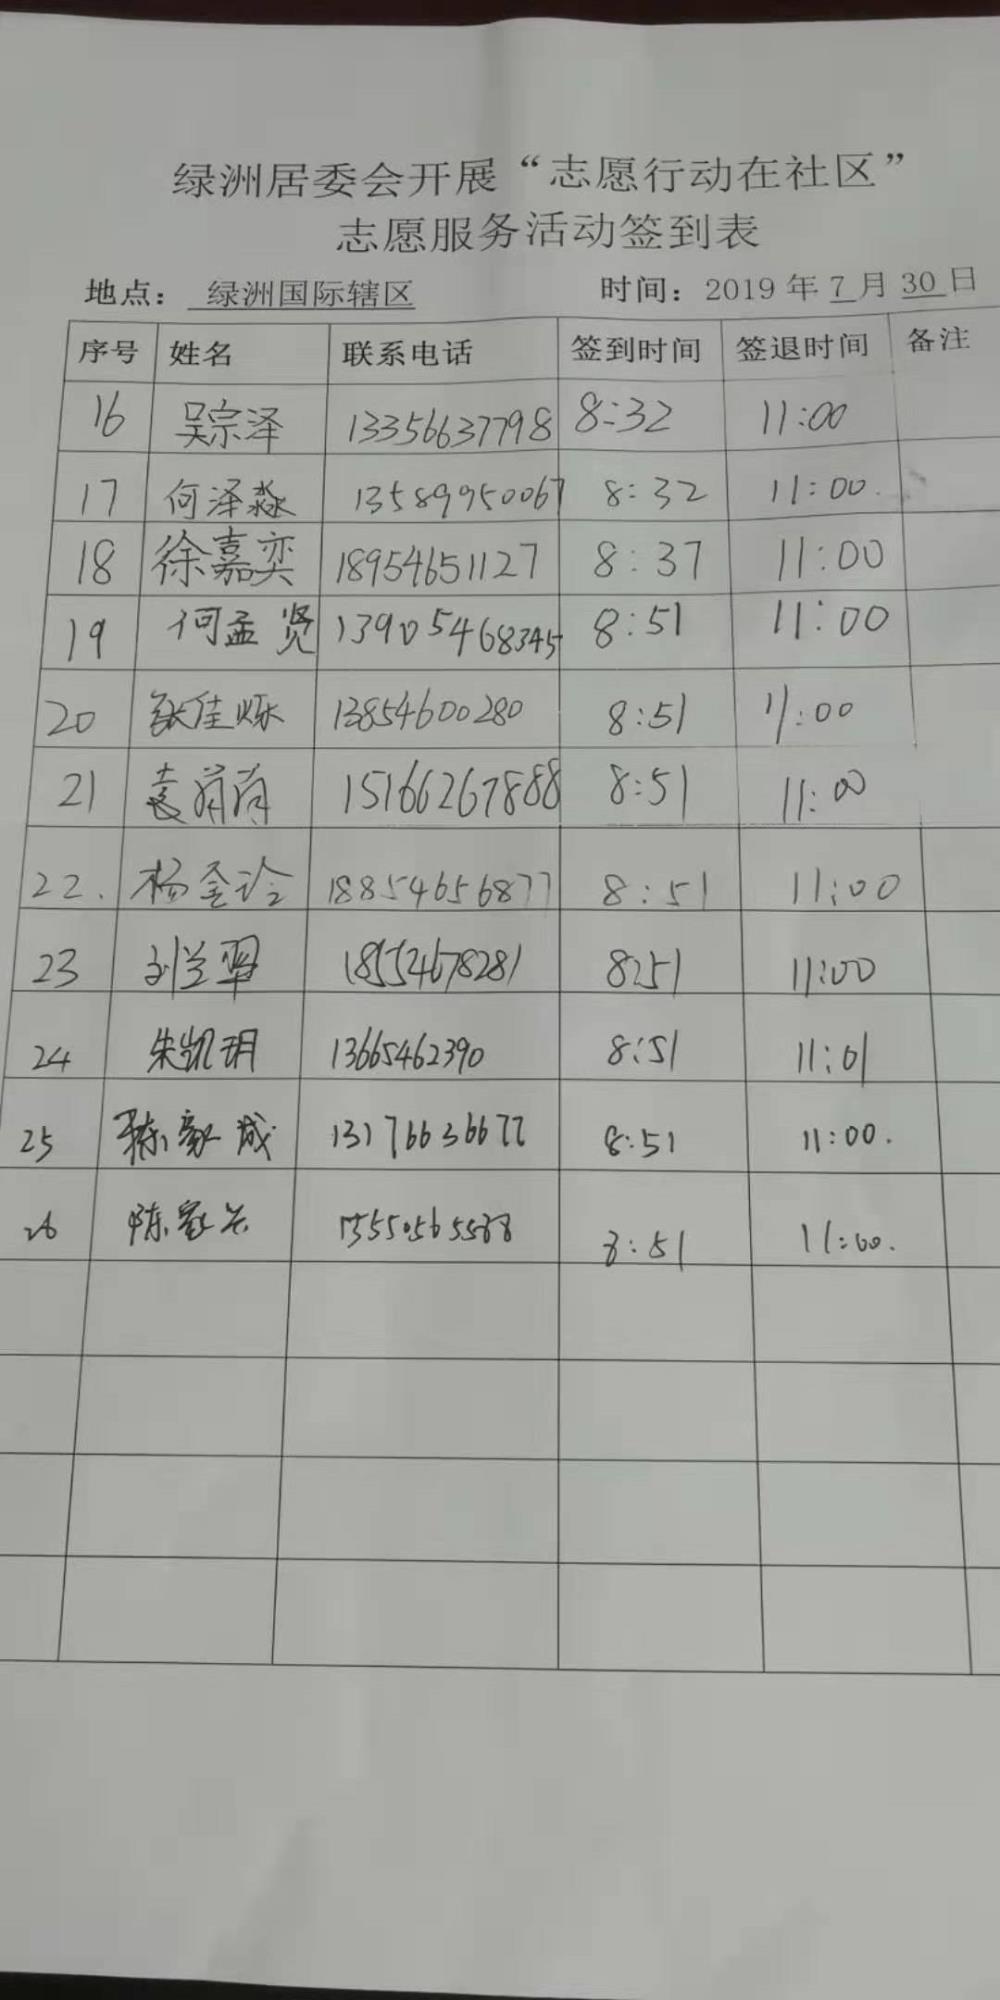 绿洲居委会开展“志愿行动在社区”
志愿服务活动签到表
地点： 绿洲国际辖区 时间：2019 年 7 月 30 日
序号 姓名 联系电话 签到时间 签退时间 备注
16 吴宗泽 13356637798 8:32 11:00
17 何泽淼 13589950067 8:32 11:00.
18 徐嘉奕 18954651127 8:37 11:00
19 何孟贤 13905468345 8:51 11:00
20 张佳烁 13854600280 8:51 11:00
21 袁 15166267888 8:51 11:00
22. 杨 18854656877 8:51 11:00
23 刘兰 18552467828 8:51 11:00
24 朱凯玥 13665462390 8:51 11:01
25 陈豪成 13176636677 8:51 11:00.
26 陈 8:51 11:00.